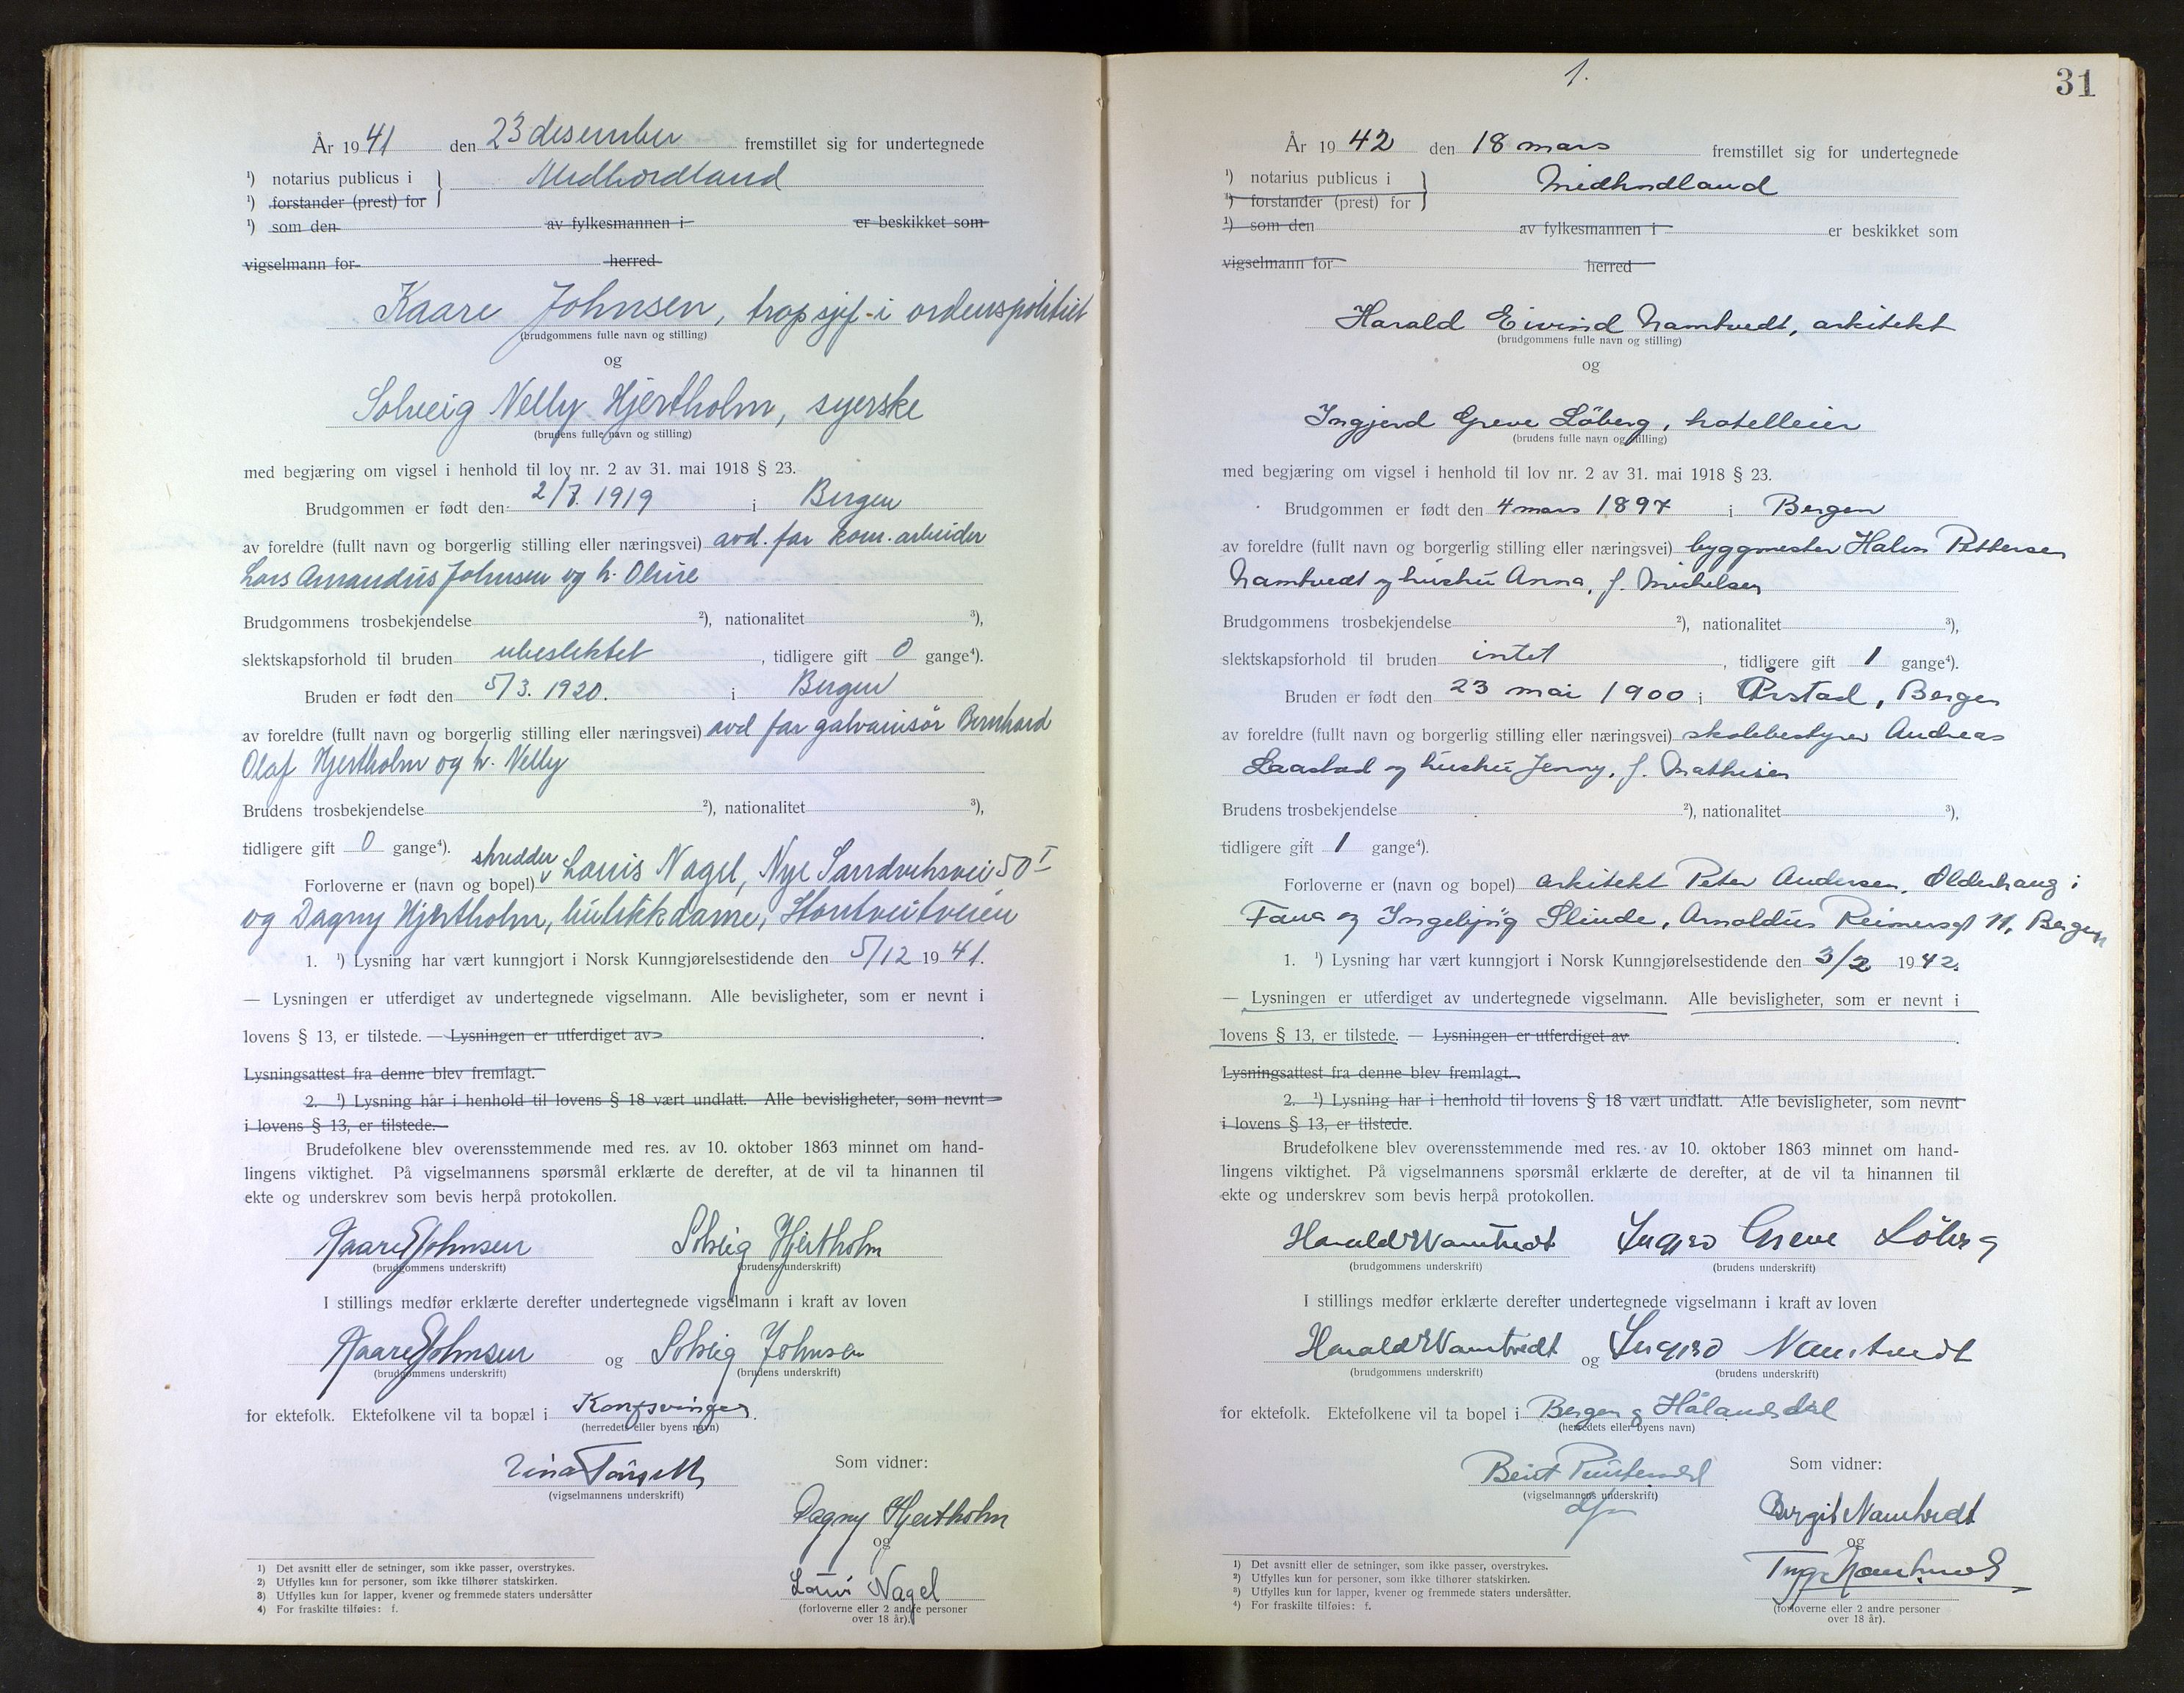 År 1941 den 23 desember fremstillet sig for undertegnede
¹) notarius publicus i } Midhordland
¹) forstander (prest) for
¹) som den av fylkesmannen i er beskikket som
vigselmann for herred
Kaare Johnsen, tropsjef i ordenspolitiet
(brudgommens fulle navn og stilling)
og
Solveig Nelly Hjertholm, syerske
(brudens fulle navn og stilling)
med begjæring om vigsel i henhold til lov nr. 2 av 31. mai 1918 § 23.
Brudgommen er født den 2/7. 1919 i Bergen
av foreldre (fullt navn og borgerlig stilling eller næringsvei) avd. far kom. arbeider
Lars Amandus Johnsen og h. Oline
Brudgommens trosbekjendelse ²), nationalitet ³),
slektskapsforhold til bruden ubeslektet, tidligere gift 0 gange⁴).
Bruden er født den 5/3. 1920. i Bergen
av foreldre (fullt navn og borgerlig stilling eller næringsvei) avd far galvanisør Bernhard
Olaf Hjertholm og h. Nelly
Brudens trosbekjendelse ²), nationalitet ³),
tidligere gift 0 gange⁴).
skredder
Forloverne er (navn og bopel) Louis Nagel, Nye Sandviksvei 50 I
og Dagny Hjertholm, butikkdame, Storetveitveien
1. ¹) Lysning har vært kunngjort i Norsk Kunngjørelsestidende den 5/12 1941.
— Lysningen er utferdiget av undertegnede vigselmann. Alle bevisligheter, som er nevnt i
lovens § 13, er tilstede. — Lysningen er utferdiget av .
Lysningsattest fra denne blev fremlagt.
2. ¹) Lysning har i henhold til lovens § 18 vært undlatt. Alle bevisligheter, som nevnt
i lovens § 13, er tilstede.
Brudefolkene blev overensstemmende med res. av 10. oktober 1863 minnet om hand-
lingens viktighet. På vigselmannens spørsmål erklærte de derefter, at de vil ta hinannen til
ekte og underskrev som bevis herpå protokollen.
Kaare Johnsen Solveig Hjertholm
(brudgommens underskrift) (brudens underskrift)
I stillings medfør erklærte derefter undertegnede vigselmann i kraft av loven
Kaare Johnsen og Solveig Johnsen
(brudgommens underskrift) (brudens underskrift)
for ektefolk. Ektefolkene vil ta bopæl i Kongsvinger.
(herredets eller byens navn)
(vigselmannens underskrift)
Som vidner:
Dagny Hjertholm
og
Louis Nagel
(forloverne eller 2 andre personer
over 18 år).
1) Det avsnitt eller de setninger, som ikke passer, overstrykes.
2) Utfylles kun for personer, som ikke tilhører statskirken.
3) Utfylles kun for lapper, kvener og fremmede staters undersåtter
4) For fraskilte tilføies: f.
1.
31
År 1942 den 18 mars fremstillet sig for undertegnede
¹) notarius publicus i } Midhordland
¹) forstander (prest) for
¹) som den av fylkesmannen i er beskikket som
vigselmann for herred
Harald Eivind Namtvedt, arkitekt
(brudgommens fulle navn og stilling)
og
Ingjerd Greve Løberg, hotelleier
(brudens fulle navn og stilling)
med begjæring om vigsel i henhold til lov nr. 2 av 31. mai 1918 § 23.
Brudgommen er født den 4 mars 1897 i Bergen
av foreldre (fullt navn og borgerlig stilling eller næringsvei) byggmester Halvor Pettersen
Namtvedt og hustru Anna, f. Michelsen
Brudgommens trosbekjendelse ²), nationalitet ³),
slektskapsforhold til bruden intet, tidligere gift 1 gange⁴).
Bruden er født den 23 mai 1900 i Årstad, Bergen
av foreldre (fullt navn og borgerlig stilling eller næringsvei) skolebestyrer Andreas
Laastad og hustru Jenny, f. Mathisen
Brudens trosbekjendelse ²), nationalitet ³),
tidligere gift 1 gange⁴).
Forloverne er (navn og bopel) arkitekt Peter Andersen, Olderhaug i
Fana og Ingebjørg Slinde, Arnoldus Reimersgt 11, Bergen
1. ¹) Lysning har vært kunngjort i Norsk Kunngjørelsestidende den 3/2 1942.
— Lysningen er utferdiget av undertegnede vigselmann. Alle bevisligheter, som er nevnt i
lovens § 13, er tilstede. — Lysningen er utferdiget av .
Lysningsattest fra denne blev fremlagt.
2. ¹) Lysning har i henhold til lovens § 18 vært undlatt. Alle bevisligheter, som nevnt
i lovens § 13, er tilstede.
Brudefolkene blev overensstemmende med res. av 10. oktober 1863 minnet om hand-
lingens viktighet. På vigselmannens spørsmål erklærte de derefter, at de vil ta hinannen til
ekte og underskrev som bevis herpå protokollen.
Harald Namtvedt Greve Løberg
(brudgommens underskrift) (brudens underskrift)
I stillings medfør erklærte derefter undertegnede vigselmann i kraft av loven
Harald Namtvedt og Namtvedt
(brudgommens underskrift) (brudens underskrift)
for ektefolk. Ektefolkene vil ta bopel i Bergen og Hålandsdal
(herredets eller byens navn)
(vigselmannens underskrift)
Som vidner:
Birgit Namtvedt
og
Namtvedt
(forloverne eller 2 andre personer
over 18 år).
¹) Det avsnitt eller de setninger, som ikke passer, overstrykes.
²) Utfylles kun for personer, som ikke tilhører statskirken.
³) Utfylles kun for lapper, kvener og fremmede staters undersåtter.
⁴) For fraskilte tilføies: f.